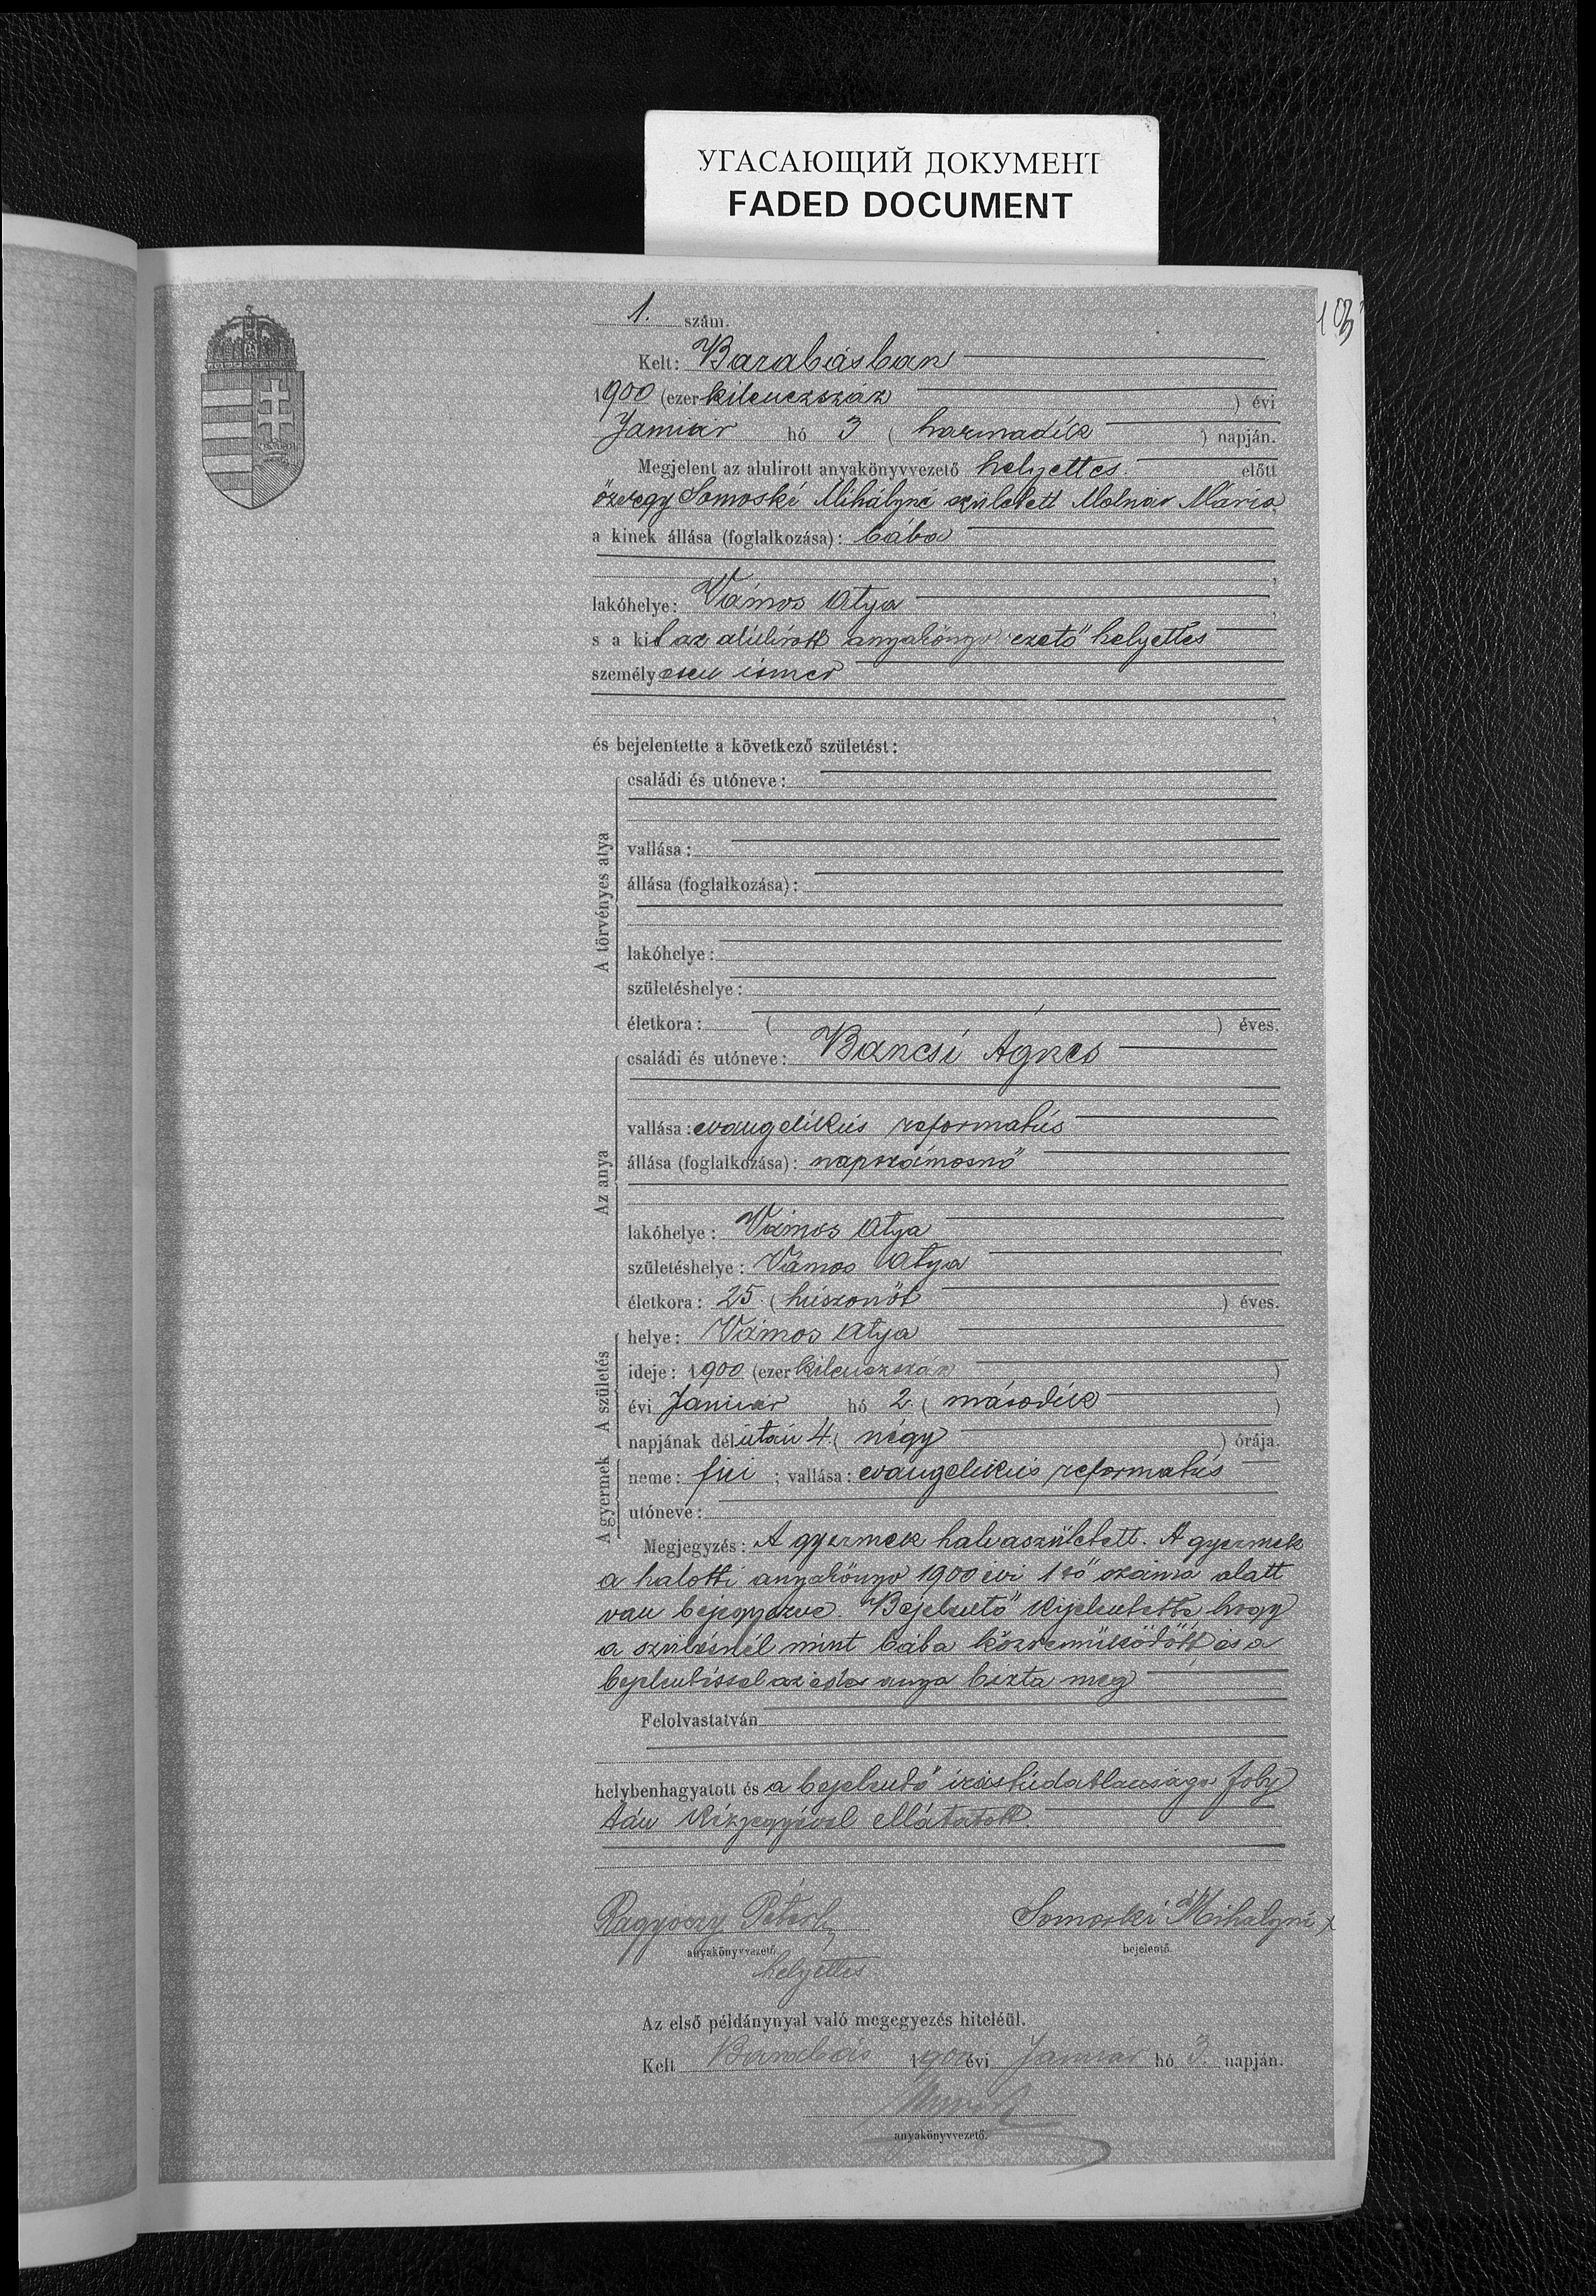 УГАСАЮЩИЙ ДОКУМЕНТ
FADED DOCUMENT
103
1. szám.
Kelt: Barabásban
1900 (ezer kilenczszáz ) évi
Január hó 3 ( harmadik ) napján.
Megjelent az alulirott anyakönyvvezető helyettes előtt
özvegy Somoski Mihályné született Molnár Mária
a kinek állása (foglalkozása): bába
,
lakóhelye: Vámos Atya ,
s a kit az alulírott anyakönyvvezető helyettes
személyesen ismer
,
és bejelentette a következő születést:
A törvényes atya
családi és utóneve:
vallása:
állása (foglalkozása):
lakóhelye:
születéshelye:
életkora: ( ) éves.
Az anya
családi és utóneve: Bancsi Ágnes
vallása: evangélikus református
állása (foglalkozása): napszámosnő
lakóhelye: Vámos Atya
születéshelye: Vámos Atya
életkora: 25 (huszonöt ) éves.
A születés
helye: Vámos Atya
ideje: 1900 (ezer kilenczszáz )
évi Január hó 2. ( második )
napjának délután 4. ( négy ) órája.
A gyermek
neme: fiú ; vallása: evangelikus református
utóneve:
Megjegyzés: A gyermek halvaszületett. A gyermek
a halotti anyakönyv 1900 évi 1ső száma alatt
van bejegyezve. Bejelentő kijelentette, hogy
a szülésnél mint bába közreműködött és a
bejelentéssel az édes anya bizta meg
Felolvastatván
helybenhagyatott és a bejelentő irástudatlansága foly
tán kézjegyével ellátatott.
Ragyoczy Péter Somoski Mihályné x
anyakönyvvezető. bejelentő.
helyettes
Az első példánynyal való megegyezés hiteléül.
Kelt Barabás 1900 évi Január hó 3. napján.
anyakönyvvezető.